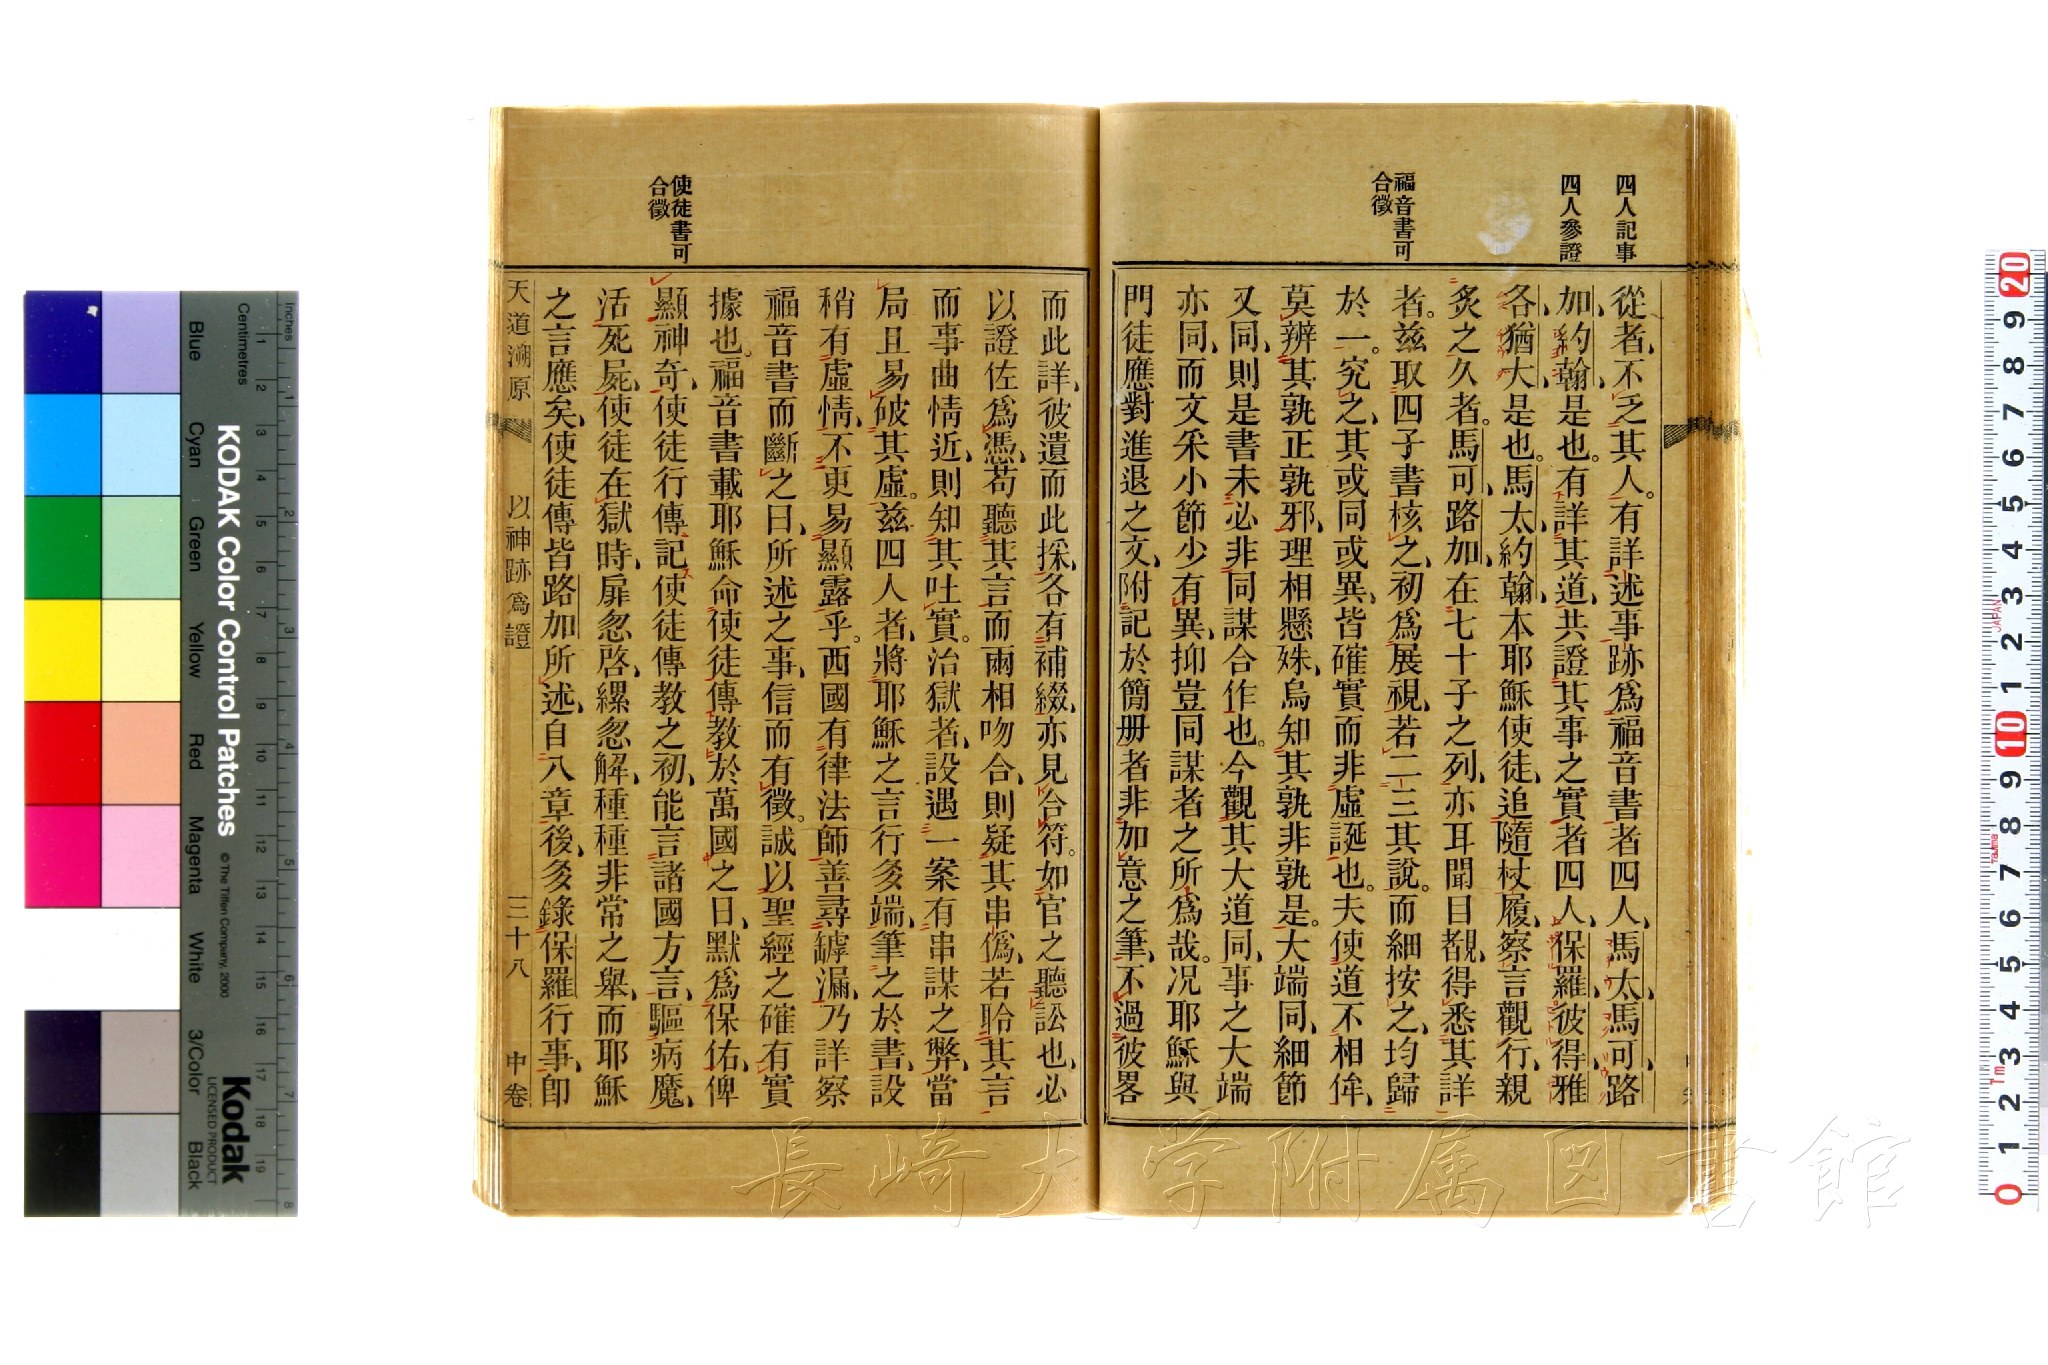 四人記事
四人參證
福音書可
合徵
從者、不乏其人。有詳述事跡爲福音書者四人、馬太、馬可、路
加、約翰是也。有詳其道、共證其事之實者四人、保羅、彼得、雅
各、猶大是也。馬太、約翰、本耶穌使徒、追隨杖履、察言觀行、親
炙之久者。馬可、路加、在七十子之列、亦耳聞目覩、得悉其詳
者。茲取四子書核之、初爲展視、若二三其說。而細按之、均歸
於一。究之、其或同或異、皆確實而非虛誕也。夫使道不相侔、
莫辨其孰正孰邪、理相懸殊、烏知其孰非孰是。大端同、細節
又同、則是書未必非同謀合作也。今觀其大道同、事之大端
亦同、而文釆小節少有異、抑豈同謀者之所爲哉。况耶穌與
門徒應對進退之文、附記於簡册者、非加意之筆、不過彼畧
使徒書可
合徵
而此詳、彼遺而此採、各有補綴、亦見合符。如官之聽訟也、必
以證佐爲憑、苟聽其言而兩相吻合、則疑其串僞、若聆其言
而事曲情近、則知其吐實。治獄者、設遇一案有串謀之弊、當
局且易破其虛。茲四人者、將耶穌之言行多端、筆之於書、設
稍有虛情、不更易顯露乎。西國有律法師善尋罅漏、乃詳察
福音書而斷之曰、所述之事、信而有徵。誠以聖經之確有實
據也。福音書載耶穌命使徒傳教於萬國之日、默爲保佑、俾
顯神奇、使徒行傳、記使徒傳教之初、能言諸國方言、驅病魔、
活死屍、使徒在獄時、扉忽啓、縲忽解、種種非常之舉、而耶穌
之言應矣、使徒傳皆路加所述、自八章後、多錄保羅行事、卽
天道溯原
以神跡爲證
三十八
中卷
Inches
Centimetres
Blue
Cyan
Green
Yellow
Red
Magenta
White
3/Color
Black
KODAK Color Control Patches
©The Tiffen Company, 2000
Kodak
LICENSED PRODUCT
長崎大学附属図書館
JAPAN
Tajima